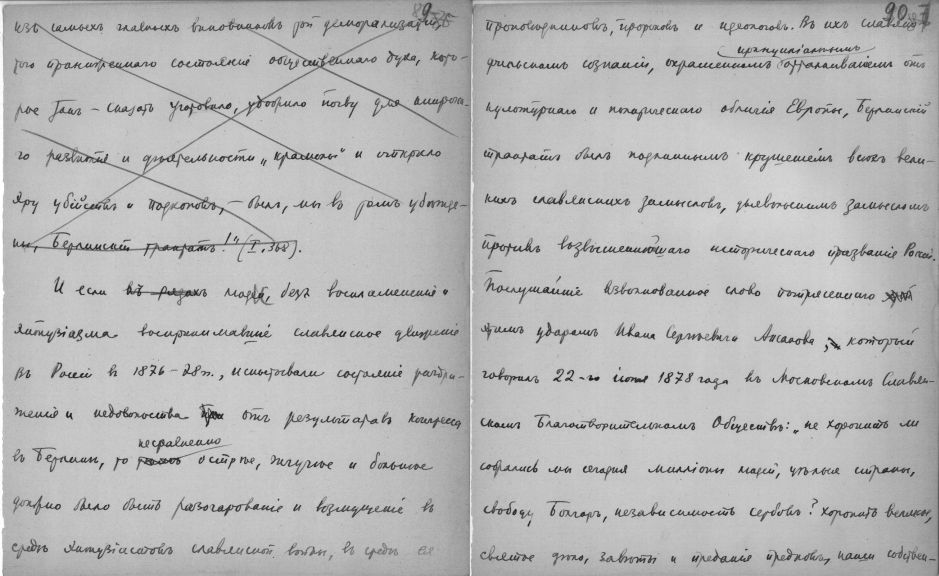 89
изъ самыхъ главныхъ виновниковъ той деморализаціи,
того прискорбнаго состоянія общественнаго духа, кото-
рое такъ-сказать уготовило, удобрило почву для широка-
го развитія и дѣятельности „крамолы“ и открыло
эру убійствъ и подкоповъ, – былъ, мы въ томъ убѣжде-
ны, Берлинскій трактатъ!“ (I, 368).
И если въ рядахъ людей, безъ воспламененія и
энтузіазма воспринимавшіе славянское движеніе
въ Россіи въ 1876–78 гг., испытывали состояніе раздра-
женія и недовольства отъ результатовъ конгресса
несравненно
въ Берлинѣ, то острѣе, жгучѣе и больнѣе
должно было быть разочарованіе и возмущеніе въ
средѣ энтузіастовъ славянской войны, въ средѣ ея
90
проповѣдниковъ, пророковъ и идеологовъ. Въ ихъ славяно-
принципіальнымъ
фильскомъ сознаніи, окрашенномъ отталкиваніемъ отъ
культурнаго и политическаго обличія Европы, Берлинскій
трактатъ былъ подлиннымъ крушеніемъ всѣхъ вели-
кихъ славянскихъ замысловъ, дьявольскимъ замысломъ
противъ возвышеннѣйшаго историческаго призванія Россіи.
Послушайте взволнованное слово потрясеннаго
этимъ ударомъ Ивана Сергѣевича Аксакова, который
говорилъ 22-го іюня 1878 года въ Московскомъ Славян-
скомъ Благотворительномъ Обществѣ: „не хоронить ли
собрались мы сегодня милліоны людей, цѣлыя страны,
свободу Болгаръ, независимость сербовъ? Хоронить великое,
святое дѣло, завѣты и преданія предковъ, наши собствен-